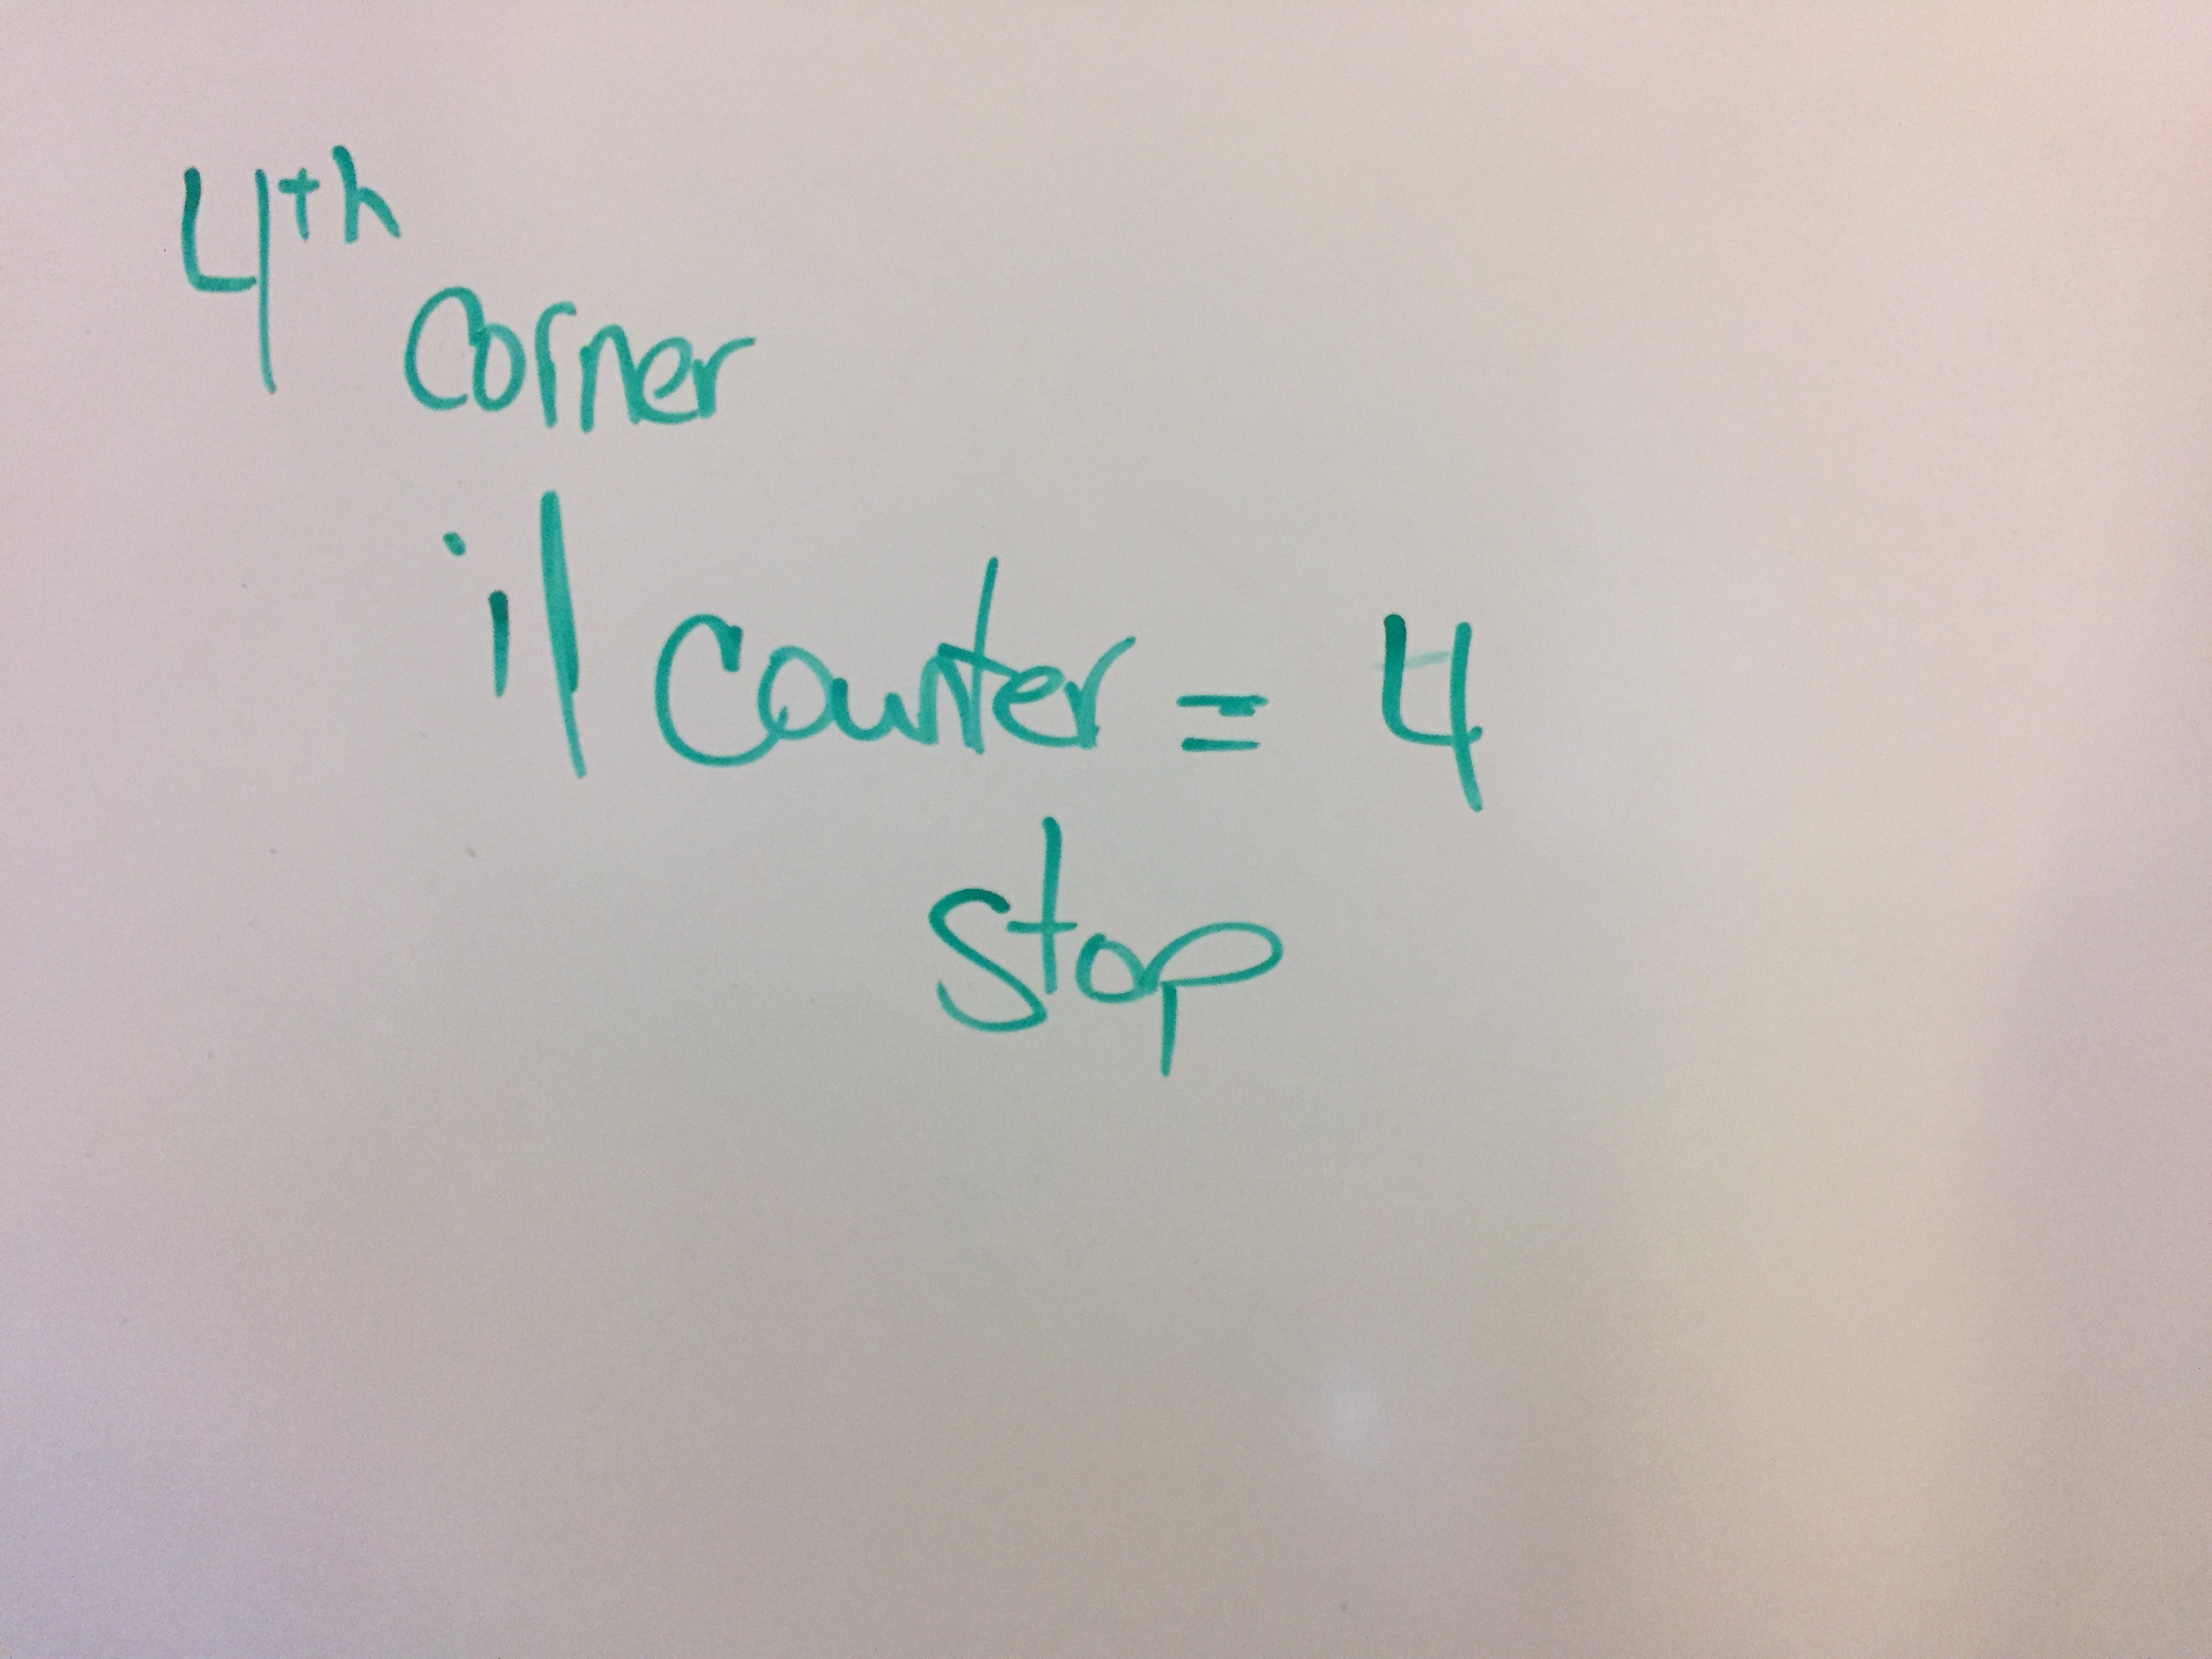 4th
corner
if counter = 4
stop